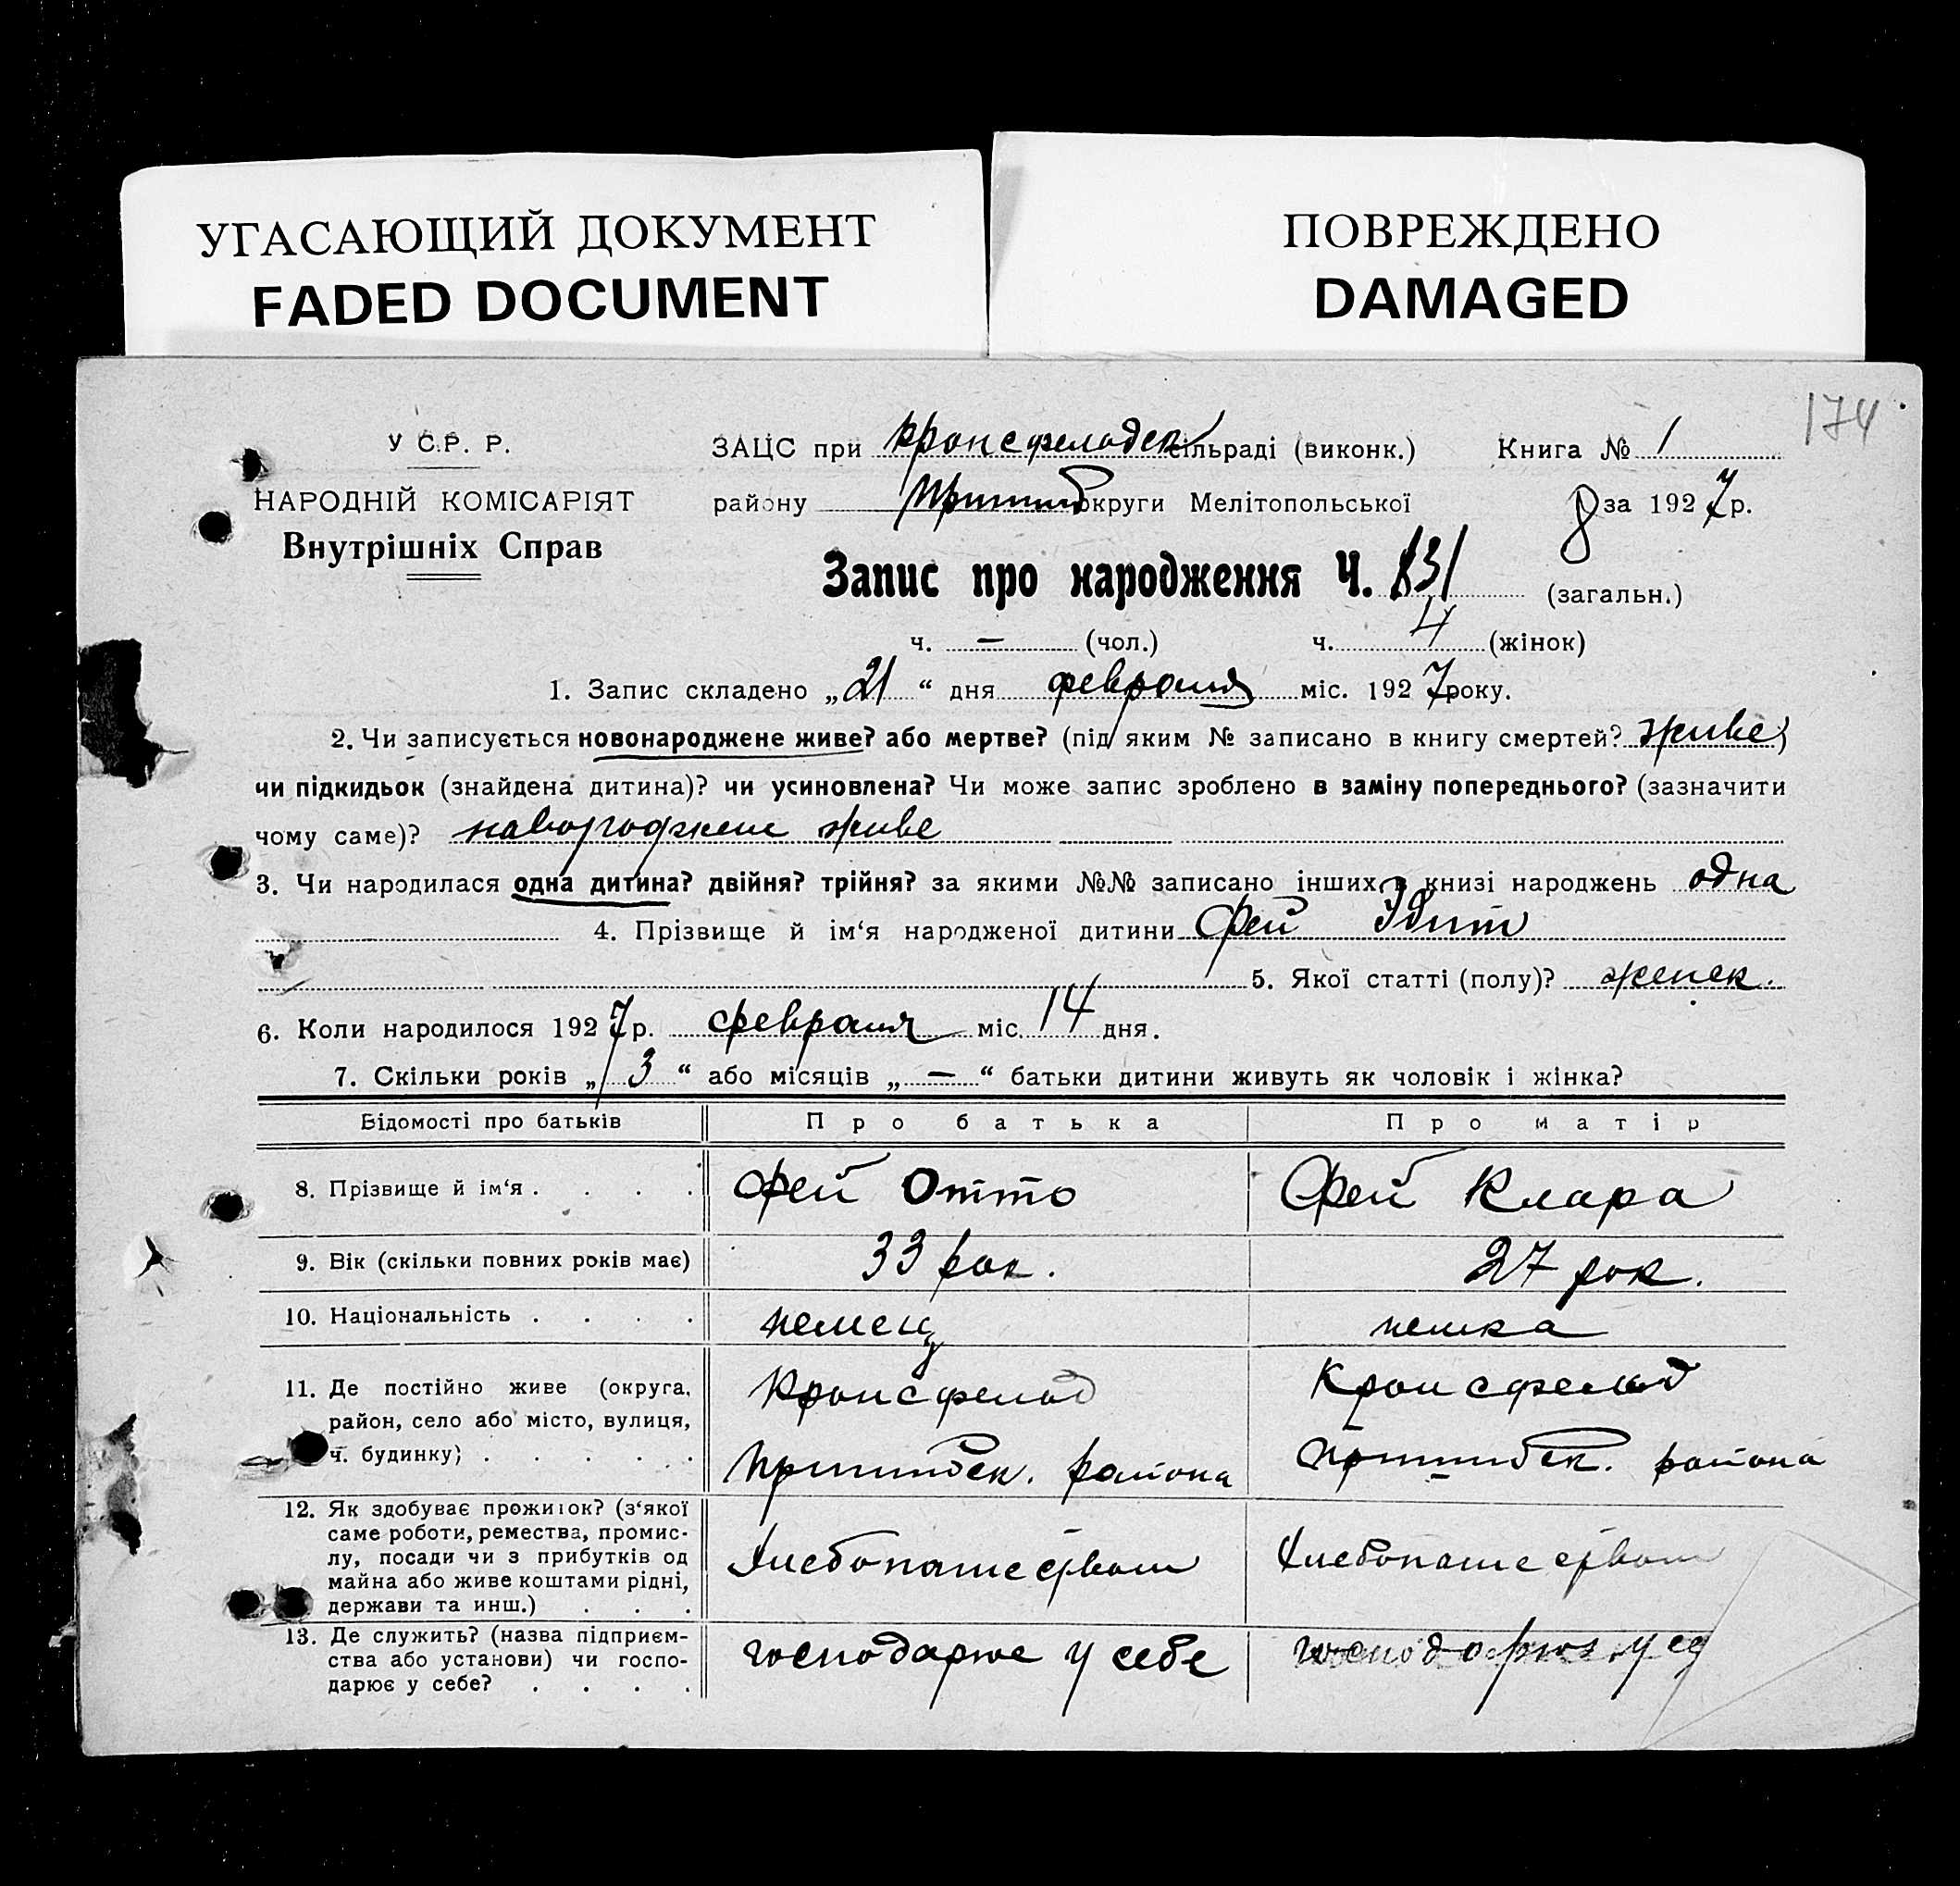 УГАСАЮЩИЙ ДОКУМЕНТ
FADED DOCUMENT
ПОВРЕЖДЕНО
DAMAGED
174
У С.Р. Р.
НАРОДНІЙ КОМІСАРІЯТ
Внутрішніх Справ
ЗАЦС при Кронсфельдск сільраді (виконк.) Книга № 1
району Пришиб округи Мелітопольської за 1927 р.
Запис про народження Ч. 831 (загальн.)
ч. — (чол.) ч. 4 (жінок)
1. Запис складено „21“ дня февраля міс. 1927 року.
2. Чи записується новонароджене живе? або мертве? (під яким № записано в книгу смертей? живе)
чи підкидьок (знайдена дитина)? чи усиновлена? Чи може запис зроблено в заміну попереднього? (зазначити
чому саме)? живе
3. Чи народилася одна дитина? двійня? трійня? за якими №№ записано інших в книзі народжень одна
4. Прізвище й ім‘я народженої дитини Фей Эдит
5. Якої статті (полу)? женск.
6. Коли народилося 1927 р. февраля міс. 14 дня.
7. Скільки років „3“ або місяців „—“ батьки дитини живуть як чоловік і жінка?
Відомості про батьків Про батька Про матір
8. Прізвище й ім‘я . . . . Фей Отто Фей Клара
9. Вік (скільки повних років має) 33 рок. 27 рок.
10. Національність . . . . немец немка
11. Де постійно живе (округа, район, село або місто, вулиця, ч. будинку) . . . . . Кронсфельд Пришибск. района Кронсфельд Пришибск. района
12. Як здобуває прожиток? (з‘якої саме роботи, ремества, промислу, посади чи з прибутків од майна або живе коштами рідні, держави та инш.) . . . Хлебопашеством Хлебопашеством
13. Де служить? (назва підприємства або установи) чи господарює у себе? . . . . господарює у себе господарює у